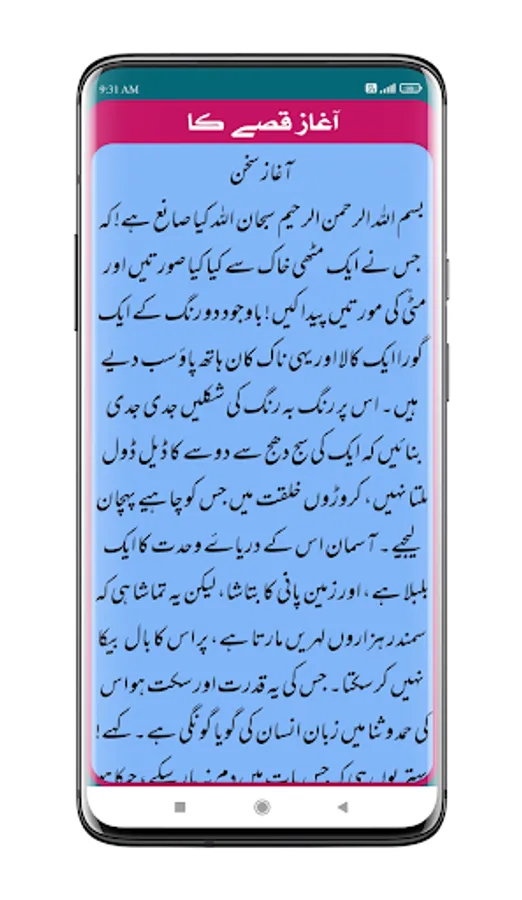 9:31 AM
آغاز قصے کا
آغاز سخن
بسم اللہ الرحمن الرحیم سبحان اللہ کیا صانع ہے! کہ
جس نے ایک مٹھی خاک سے کیا کیا صورتیں اور
مٹی کی مورتیں پیدا کیں! باوجود دو رنگ کے ایک
گورا ایک کالا اور یہی ناک کان ہاتھ پاؤ سب دیے
ہیں۔ اس پر رنگ بہ رنگ کی شکلیں جدی جدی
بنائیں کہ ایک کی سج دھج سے دوسے کا ڈیل ڈول
ملتا نہیں، کروڑوں خلقت میں جس کو چاہیے پہچان
لیجیے۔ آسمان اس کے دریائے وحدت کا ایک
بلبلا ہے، اور زمین پانی کا بتاشا، لیکن یہ تماشا ہی کہ
سمندر ہزاروں لہریں مارتا ہے، پر اس کا بال بیکا
نہیں کر سکتا۔ جس کی یہ قدرت اور سکت ہو اس
کی حمد و ثنا میں زبان انسان کی گویا گونگی ہے۔ کہے!